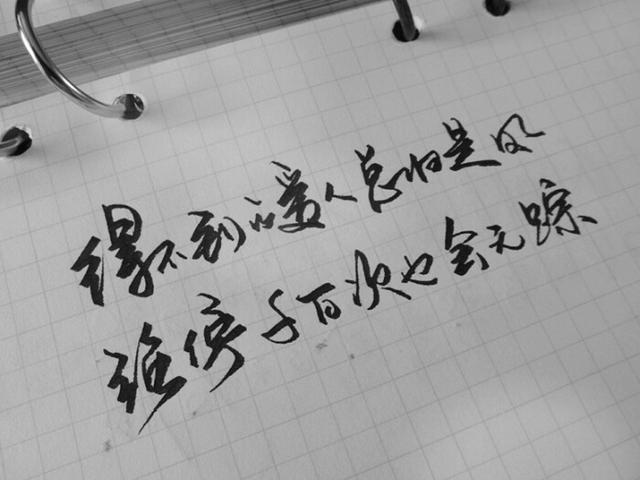 得不到的爱人总归是风
强停千百次也会无踪